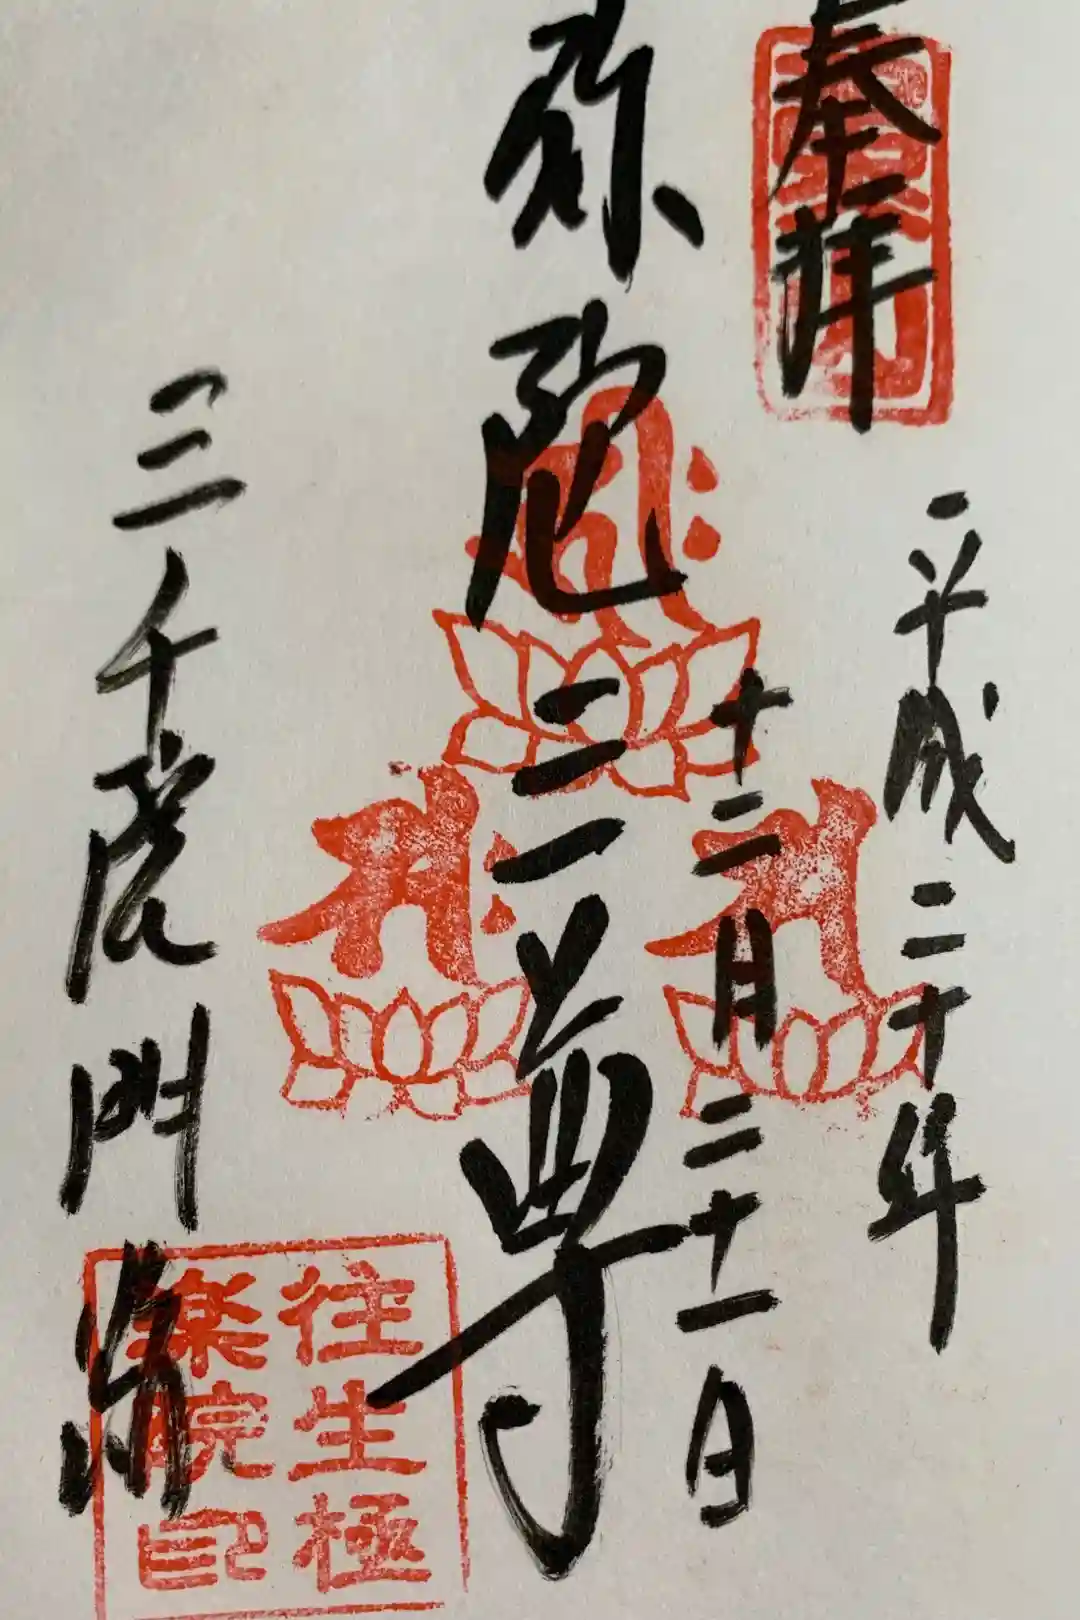 奉拝
平成二十年
十二月二十一日
弥陀三尊
三千院門跡
往生極
楽院印